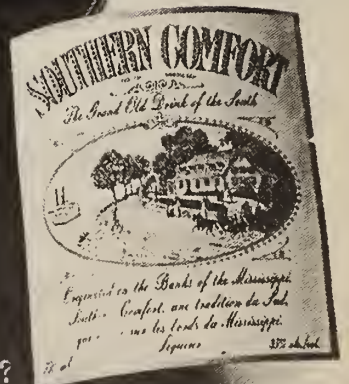 SOUTHERN COMFORT
The Grand Old Drink of the South
Engraved on the Banks of the Mississippi
Comfort, une tradition du Sud,
sur les bords du Mississippi.
Liqueur
?